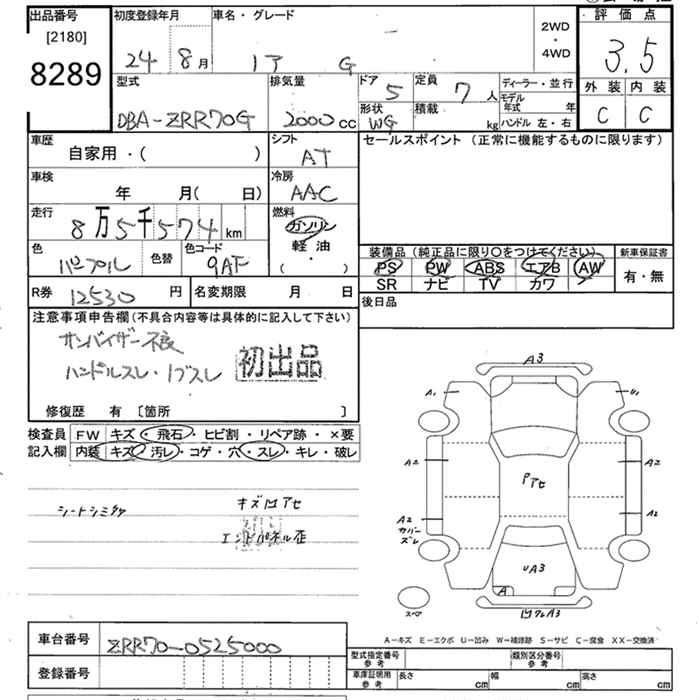 出品番号
[2180]
8289
初度登録年月
24 8月
車名・グレード
G
2WD
・
4WD
評価点
3.5
外装 内装
C C
型式
DBA-ZRR70G
排気量
2000cc
ドア
5
定員
7人
形状
WG
積載
kg
ディーラー・並行
モデル年式 年
ハンドル 左・右
車歴
自家用・( )
シフト
AT
セールスポイント (正常に機能するものに限ります)
車検
年 月( 日)
冷房
AAC
走行
8万5千574km
燃料
ガソリン
軽油
( ・ )
色
パープル
色替
色コード
9AF
装備品 (純正品に限り〇をつけてください)
新車保証書
PS PW ABS エアB AW
SR ナビ TV カワ
有・無
R券
12530円
名変期限 月 日
後日品
注意事項申告欄(不具合内容等は具体的に記入して下さい)
サンバイザー不良
ハンドルスレ・ノブスレ
初出品
修復歴 有 [箇所 ]
検査員
記入欄
FW キズ・飛石・ヒビ割・リペア跡・×要
内装 キズ・汚レ・コゲ・穴・スレ・キレ・破レ
シートシミ
キズ凹アセ
エンドパネル歪
A3
A1
U1
A2
A2
Pアセ
A2
カバー
ズレ
A2
UA3
A
スペア
凹ワレA3
A-キズ E-エクボ U-凹み W-補修跡 S-サビ C-腐食 XX-交換済
車台番号
ZRR70-0525000
登録番号
型式指定番号
参考
類別区分番号
参考
車庫証明用
参考
長さ cm
幅 cm
高さ cm